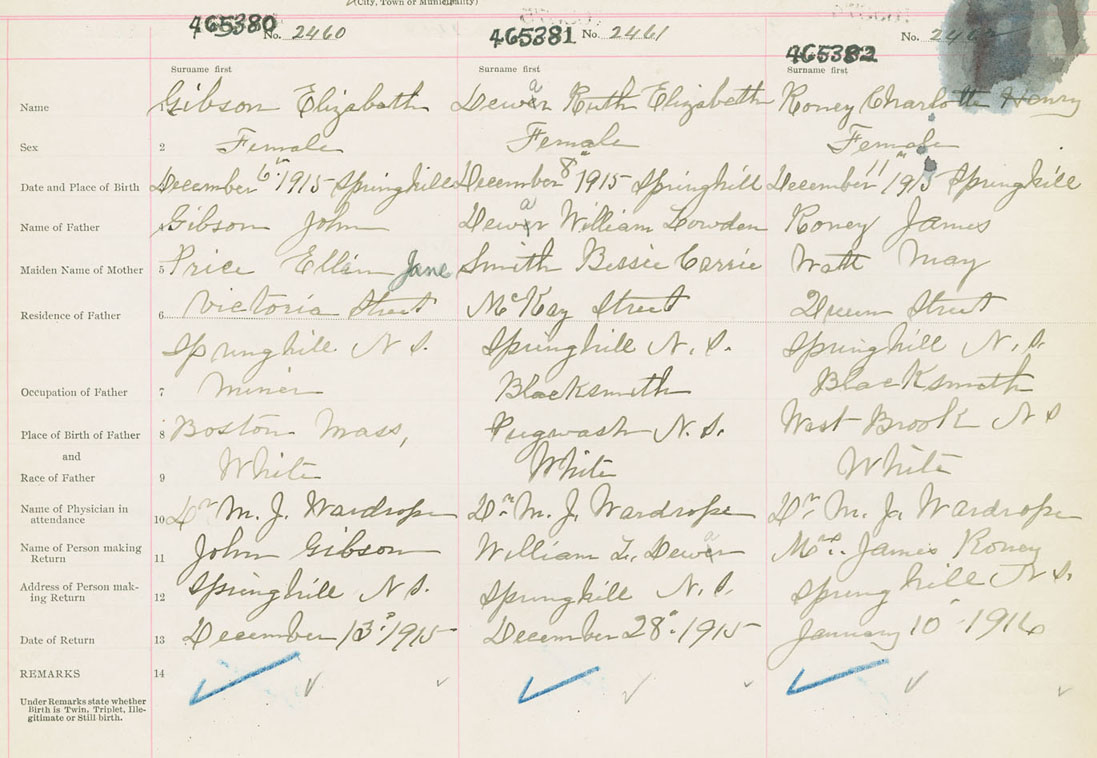 (City, Town or Municipality)
465380 No. 2460 465381 No. 2461 465382 No.
Surname first Surname first Surname first
Name Gibson Elizabeth Dewar Ruth Elizabeth Roney Charlotte Henry
Sex 2 Female Female Female
Date and Place of Birth December 6th 1915 Springhill December 8" 1915 Springhill December 11th 1915 Springhill
Name of Father 4 Gibson John Dewar William Lowden Roney James
Maiden Name of Mother 5 Price Ellen Jane Smith Bessie Carrie Watt May
Residence of Father 6 Victoria Street McKay Street Queen Street
Springhill N S. Springhill N. S. Springhill N. S.
Occupation of Father 7 Miner Blacksmith Blacksmith
Place of Birth of Father 8 Boston Mass, Pugwash N. S. West Brook N S
and
Race of Father 9 White White White
Name of Physician in
attendance 10 Dr M. J. Wardrope Dr. M. J. Wardrope Dr. M. J. Wardrope
Name of Person making
Return 11 John Gibson William L. Dewar Mrs. James Roney
Address of Person mak-
ing Return 12 Springhill N S. Springhill N. S. Springhill N S.
Date of Return 13 December 13" 1915 December 28" 1915 January 10" 1916
REMARKS 14
Under Remarks state whether
Birth is Twin, Triplet, Ille-
gitimate or Still birth.